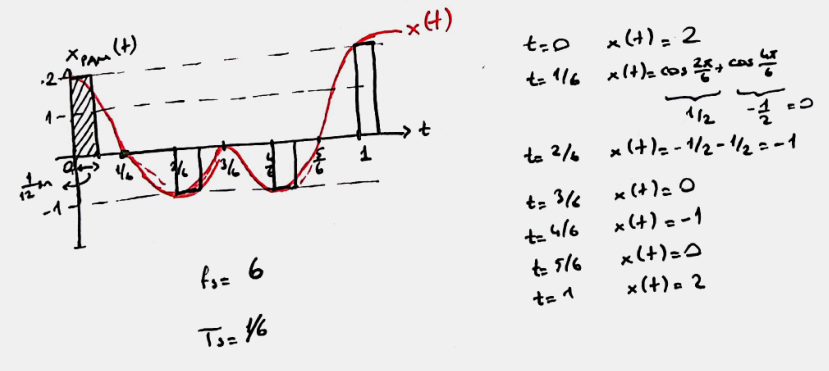 x_PAM(t)
x(t)
2
1
-1
0 1/6 2/6 3/6 4/6 5/6 1 t
1/12
fs= 6
Ts= 1/6
t=0 x(t)= 2
t= 1/6 x(t)= cos 2π/6 + cos 4π/6
1/2 -1/2 =0
t= 2/6 x(t)= -1/2 -1/2 = -1
t= 3/6 x(t)= 0
t= 4/6 x(t) = -1
t= 5/6 x(t)= 0
t= 1 x(t)= 2